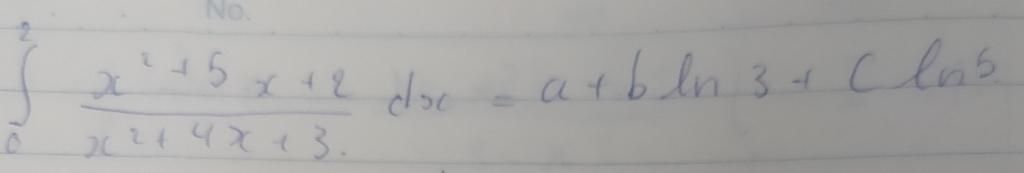 No.
∫₀² (x² + 5x + 2)/(x² + 4x + 3) dx = a + b ln 3 + C ln 5